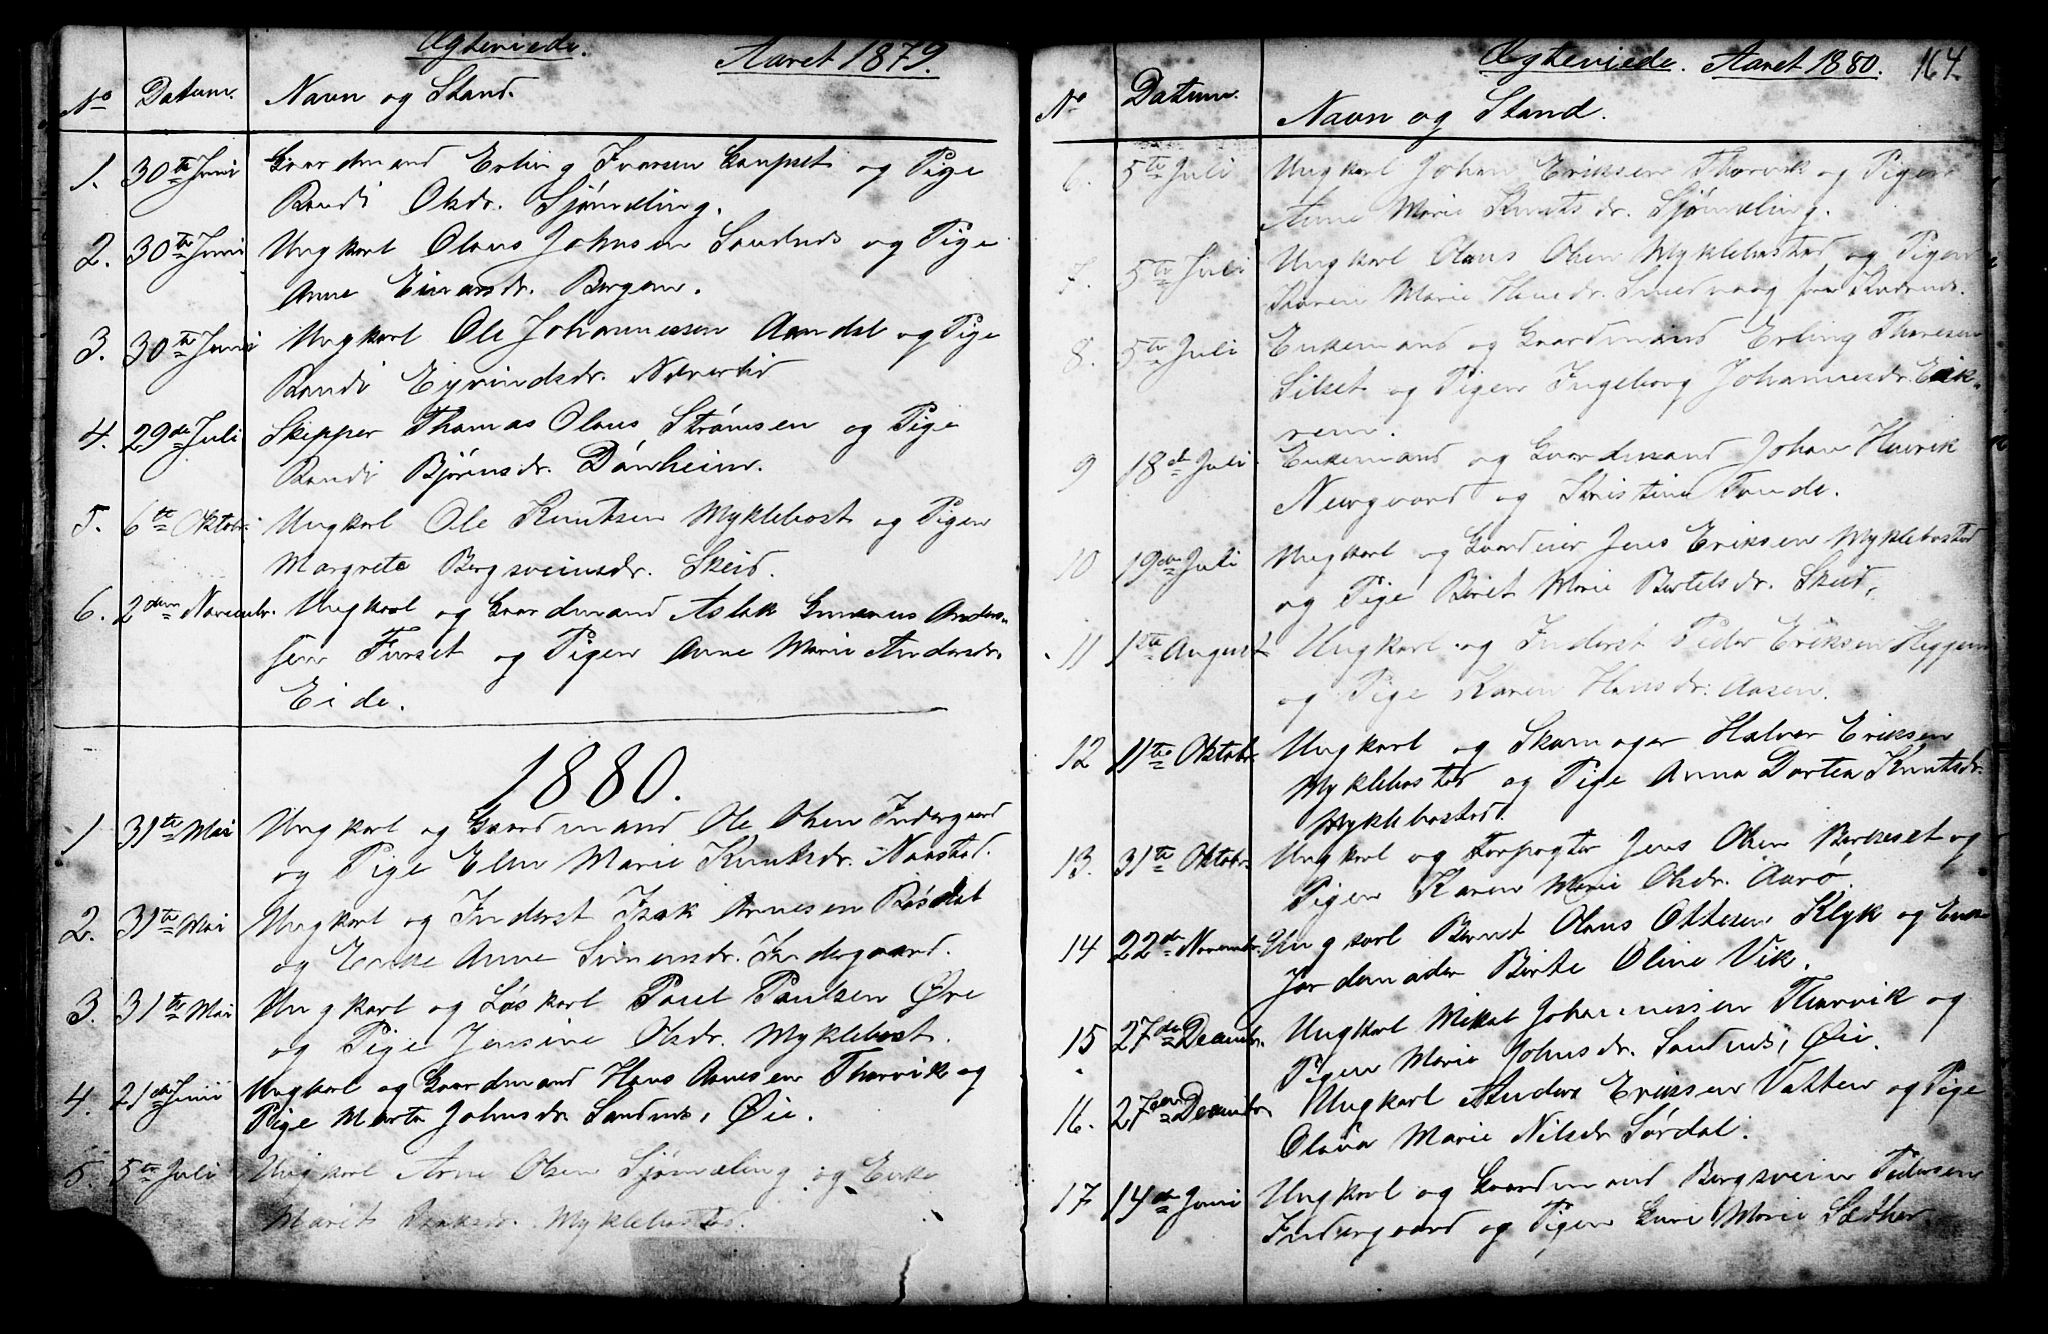 Ægteviede. Aaret 1879.
No Datum. Navn og Stand.
1. 30te Juni Gaardmand Erling Ivarsen Gaupset og Pige
Randi Olsdr. Sjømæling.
2. 30te Juni Ungkarl Olaus Johnsen Sandnes og Pige
Anne Einarsdr. Bergem.
3. 30te Juni Ungkarl Ole Johannessen Aandal og Pige
Randi Eyvindsdr. Næverlid
4. 29de Juli Skipper Thomas Olaus Strømsen og Pige
Randi Bjørnsdr. Dønheim.
5. 6te Oktobr. Ungkarl Ole Knutsen Myklebost og Pigen
Margrete Bergsveinsdr. Skeid.
6. 2den Novembr. Ungkarl og Gaardmand Aslak Gunerius Anders-
sen Furset og Pigen Anne Marie Andersdr.
Eide.
1880.
1 31te Mai Ungkarl og Gaardmand Ole Olsen Indergaard
og Pige Elen Marie Knutsdr. Naastad.
2. 31te Mai Ungkarl og Inderst Isak Arnesen Røsdal
og Enke Anne Simensdr. Indergaard.
3. 31te Mai Ungkarl og Løskarl Paul Paulsen Øre
og Pige Jensine Olsdr. Myklebost.
4. 21de Juni Ungkarl og Gaardmand Hans Arnesen Thorvik og
Pige Marta Johnsdr. Sandnes, Øie.
5. 5te Juli Ungkarl Arne Olsen Sjømæling og Enke
Marit Isaksdr. Myklebostad.
Ægteviede. Aaret 1880. 164.
No Datum. Navn og Stand.
6. 5te Juli Ungkarl Johan Eriksen Thorvik og Pigen
Anne Marie Knutsdr. Sjømæling.
7. 5te Juli Ungkarl Olaus Olsen Myklebostad og Pigen
Karen Marie Hansdr. Smedvaag fra
8. 5te Juli Enkemand og Gaardmand Erling Thoresen
Silset og Pigen Ingeborg Johannesdr. Eik-
rem.
9 18de Juli Enkemand og Gaardmand Johan Henrik
Neergaard og Kristine Tande.
10 19de Juli Ungkarl og Gaardeier Jens Eriksen Myklebostad
og Pige Beret Marie Bertelsdr. Skeid,
11 1ste August Ungkarl og Inderst Peder Eriksen Heggem
og Pige Karen Hansdr. Aasen.
12 11te Oktobr. Ungkarl og Skomager Halvor Eriksen
Myklebostad og Pige Anna Dortea Knutsdr.
Myklebostad.
13. 31te Oktobr. Ungkarl og Forpagter Jens Olsen Berseset og
Pigen Karen Marie Olsdr. Aarø.
14 22de Novembr. Ungkarl Bernt Olaus Ottesen Klyk og Enke
Jordemoder Birte Oline Vik.
15 27de Decembr. Ungkarl Mikal Johannessen Thorvik og
Pigen Marie Johnsdr. Sandnes, Øie.
16. 27de Decembr. Ungkarl Anders Eriksen Vatten og Pige
Olava Marie Nilsdr Sørdal.
17 14de Juni Ungkarl og Gaardmand Bergsvein Pedersen
Indergaard og Pigen Gure Marie Sæther.